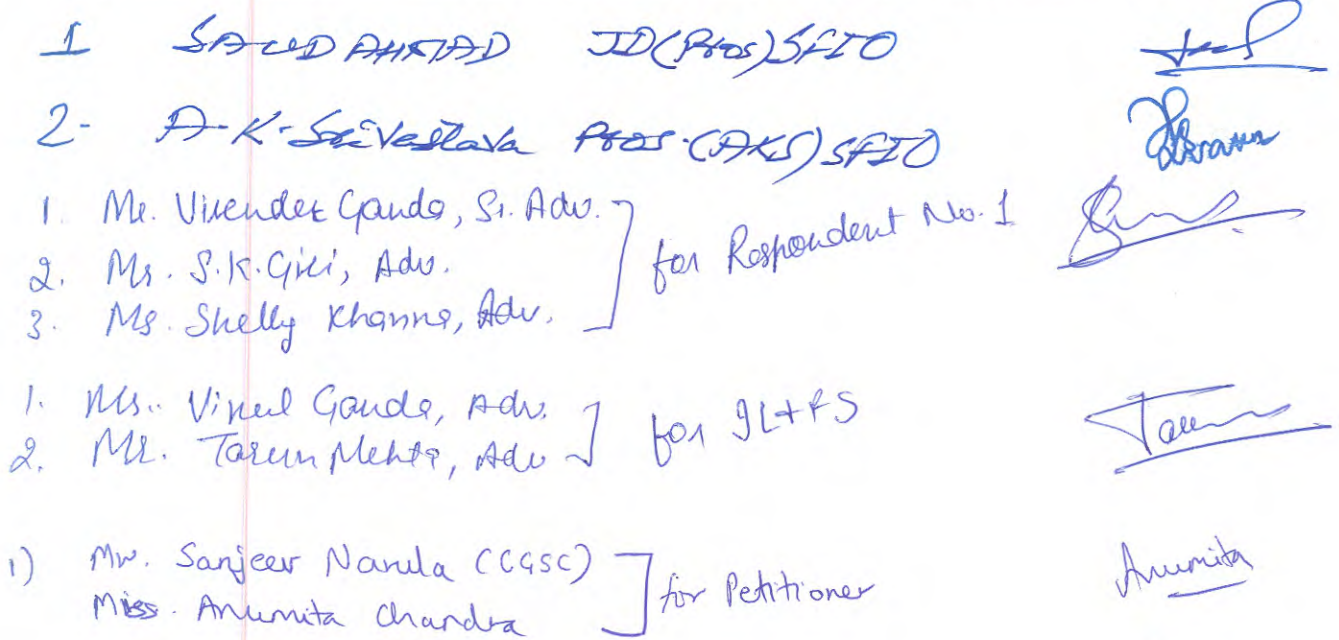 1 SAUD AHMAD JD(Pros)SFIO
2- A-K-Srivastava Pros-(AKS)SFIO
1. Mr. Virender Ganda, Sr. Adv.
2. Mr. S.K. Giri, Adv.
3. Ms. Shelly Khanna, Adv.
for Respondent No. 1
1. Mr. Vipul Ganda, Adv.
2. Mr. Tarun Mehta, Adv
for IL+FS
Tarun
1) Mr. Sanjeev Narula (CGSC)
Miss. Anumita Chandra
for Petitioner
Anumita